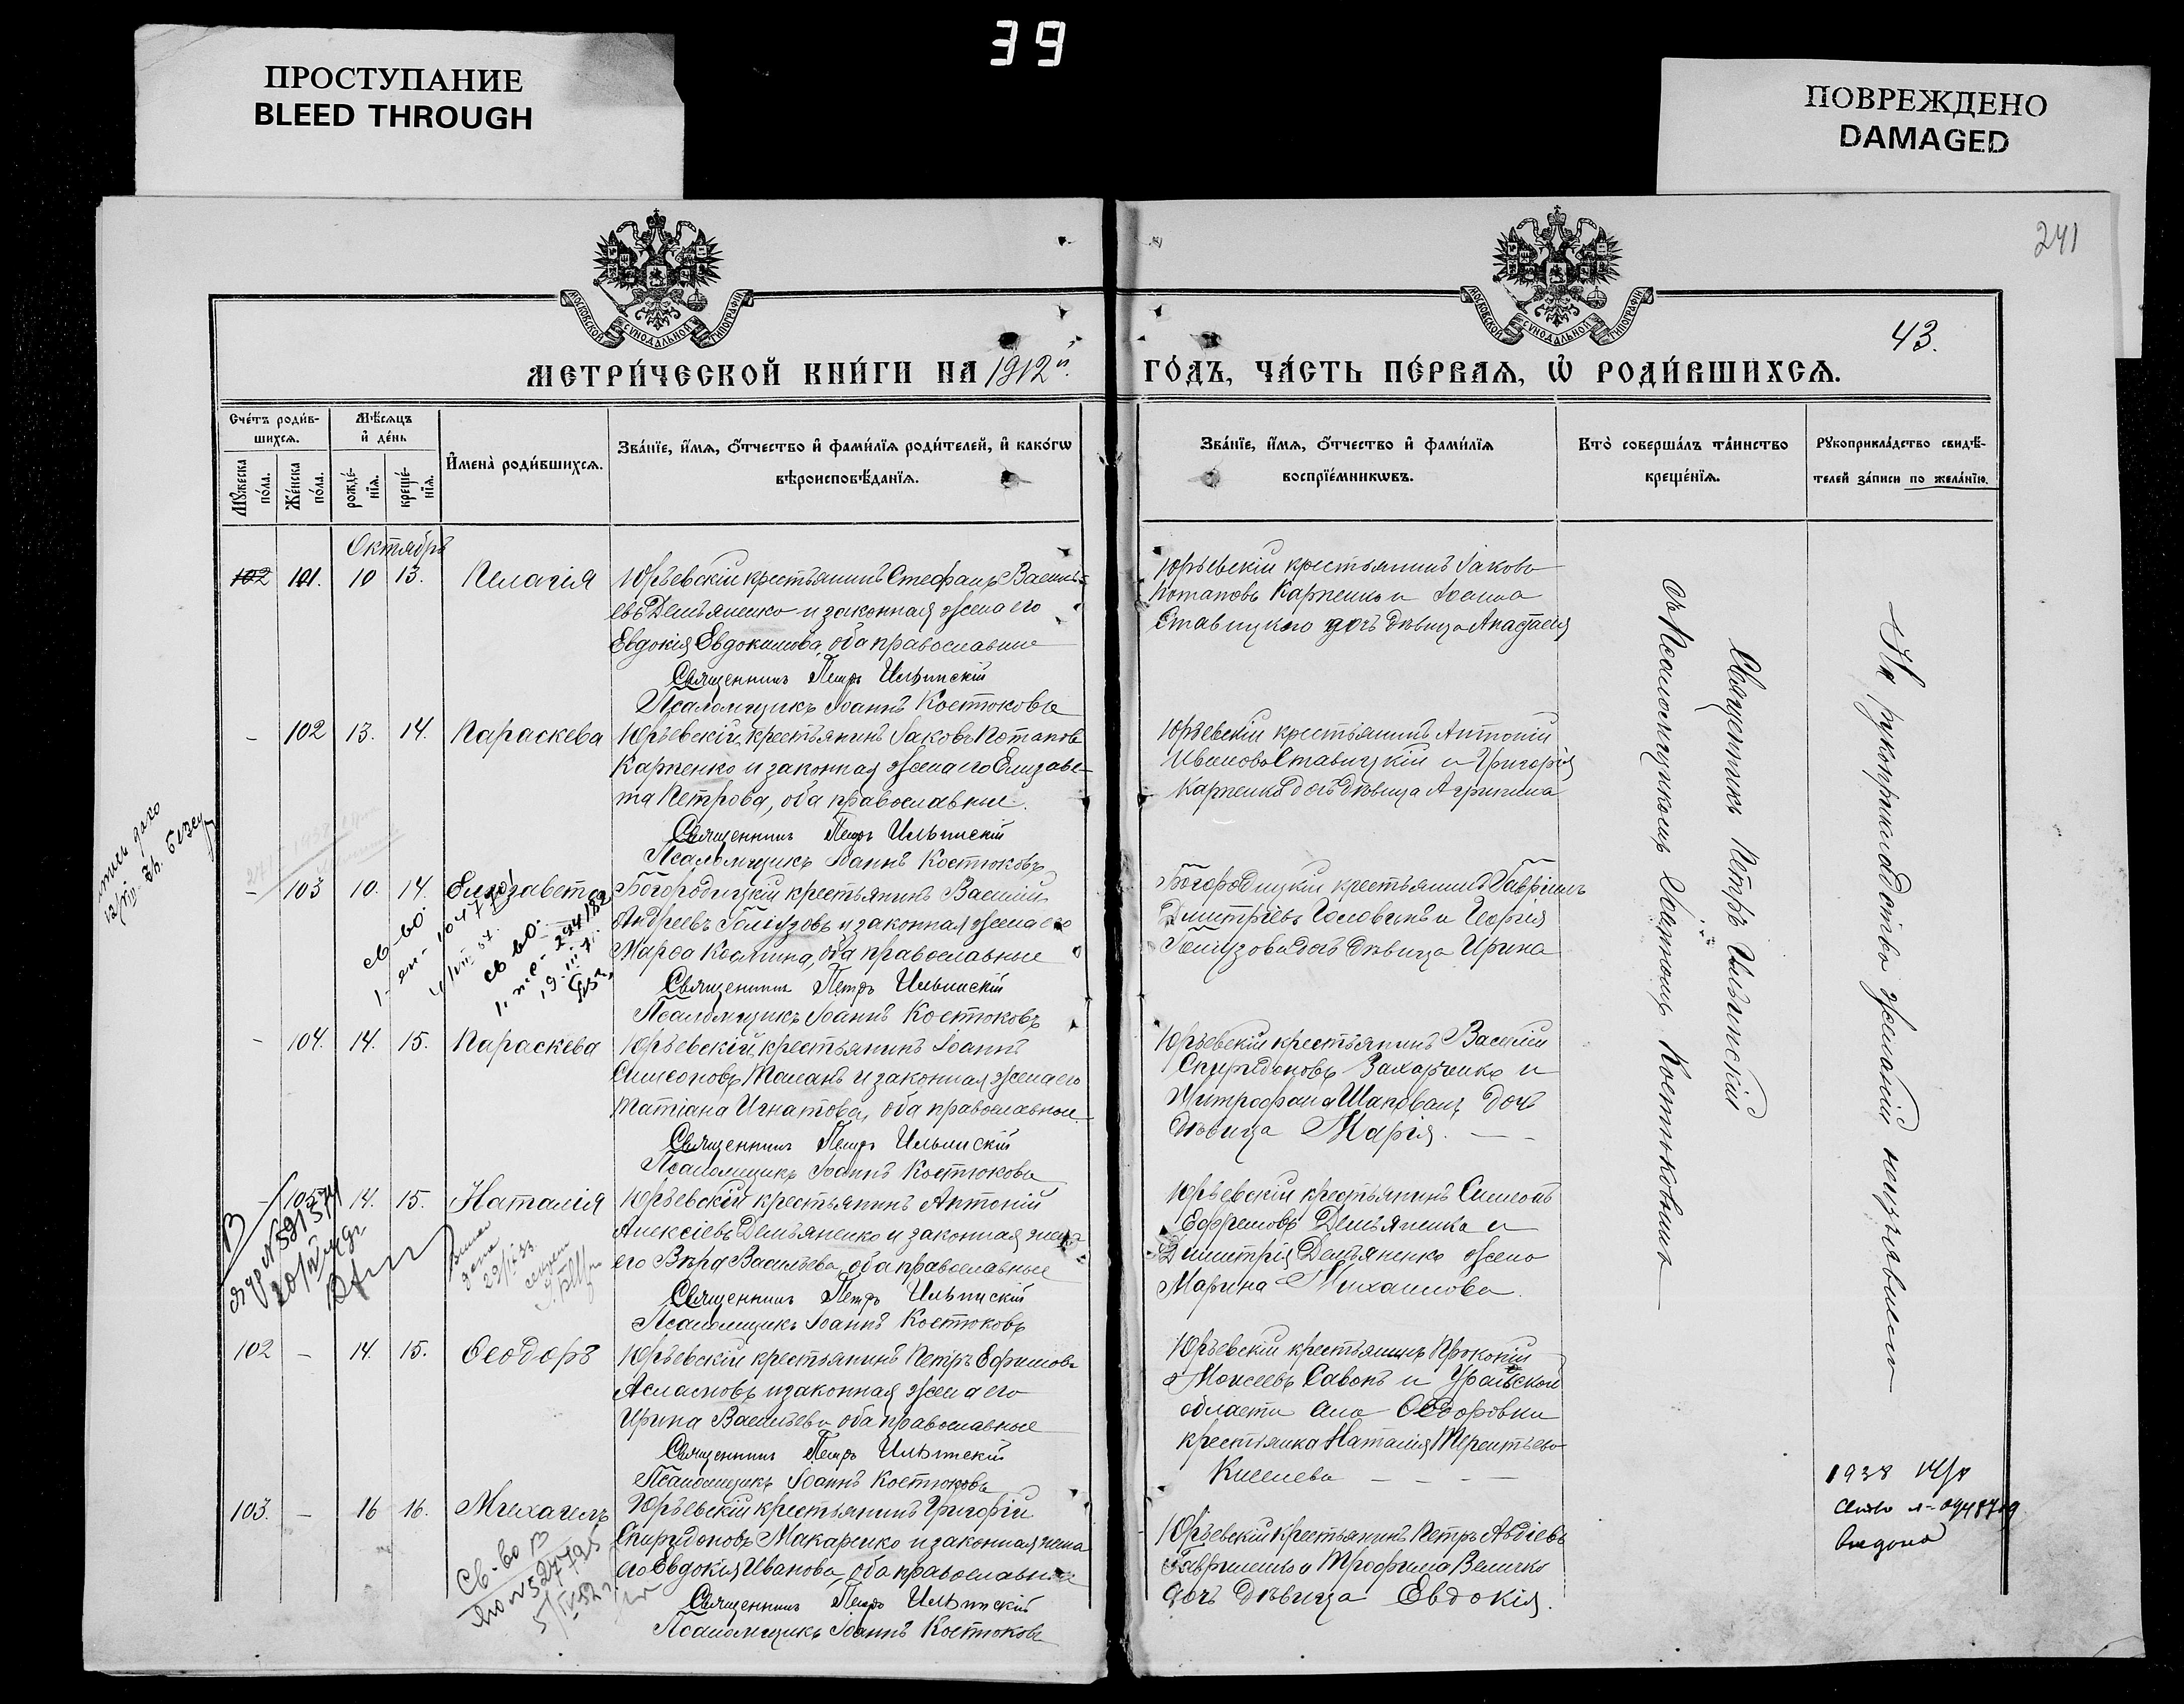 39
ПРОСТУПАНИЕ
BLEED THROUGH
ПОВРЕЖДЕНО
DAMAGED
241
43.
МОСКОВСКОЙ СѴНОДАЛЬНОЙ ТИПОГРАФІИ
МОСКОВСКОЙ СѴНОДАЛЬНОЙ ТИПОГРАФІИ
МЕТРИ́ЧЕСКОЙ КНИ́ГИ НА 1912й.
ГО́ДЪ, ЧА́СТЬ ПЕ́РВАЯ, Ѡ҆ РОДИ́ВШИХСЯ.
Сче́тъ роди́в-
шихся.
Мѣ́сяцъ
и҆ де́нь
Мꙋ́жеска по́ла.
Же́нска по́ла.
рожде́-
нїя.
креще́-
нїя.
И҆мена̀ роди́вшихся.
Зва́нїе, и҆́мя, ѻ҆́тчество и҆ фами́лїя роди́телей, и҆ како́гѡ
вѣроисповѣ́данїя.
Зва́нїе, и҆́мя, ѻ҆́тчество и҆ фами́лїя
воспрїе́мникѡвъ.
Кто̀ соверша́лъ та́инство
креще́нїя.
Рꙋкоприкла́дство свидѣ́-
телей за́писи по жела́нїю.
Октябрь
102 101. 10 13. Пелагія
Юрьевскій крестьянинъ Стефанъ Василь-
евъ Демьяненко и законная жена его
Евдокія Евдокимова, оба православные
Священникъ Петръ Ильинскій
Псаломщикъ Іоаннъ Костюковъ
Юрьевскій крестьянинъ Іаковъ
Потаповъ Карпенко и Іоанна
Ставицкаго дочь дѣвица Анастасія
- 102 13. 14. Параскева
Юрьевскій крестьянинъ Іаковъ Потаповъ
Карпенко и законная жена его Елизаве-
та Петрова, оба православные.
Священникъ Петръ Ильинскій
Псаломщикъ Іоаннъ Костюковъ
Юрьевскій крестьянинъ Антоній
Ивановъ Ставицкій и Григорія
Карпенка дочь дѣвица Агрипина
- 103 10. 14. Елизавета
Богородицкій крестьянинъ Василій
Андреевъ Голгузовъ и законная жена его
Марѳа Космина, оба православные
Священникъ Петръ Ильинскій
Псаломщикъ Іоаннъ Костюковъ
Богородицкій крестьянинъ Гавріилъ
Димитріевъ Головинъ и Георгія
дочь дѣвица Ирина
св-во
св-во
- 104. 14. 15. Параскева
Юрьевскій крестьянинъ Іоаннъ
Симеоновъ Таланъ и законная жена его
Татіана Игнатова, оба православные
Священникъ Петръ Ильинскій
Псаломщикъ Іоаннъ Костюковъ
Юрьевскій крестьянинъ Василій
Спиридоновъ Захарченко и
Митрофана Шаповалъ дочь
дѣвица Марія. —
- 105 14. 15. Наталія
Юрьевскій крестьянинъ Антоній
Алексіевъ Демьяненко и законная жена
его Вѣра Васильева, оба православные
Священникъ Петръ Ильинскій
Псаломщикъ Іоаннъ Костюковъ
Юрьевскій крестьянинъ Симеонъ
Ефремовъ Демьяненка и
Димитрія Демьяненко жена
Марина Михаилова.
102 - 14. 15. Ѳеодоръ
Юрьевскій крестьянинъ Петръ Ефимовъ
Аслановъ и законная жена его
Ирина Васильева оба православные
Священникъ Петръ Ильинскій
Псаломщикъ Іоаннъ Костюковъ
Юрьевскій крестьянинъ Прокопій
Моисеевъ Савонъ и Уральской
области села Ѳедоровки
крестьянка Наталія Терентьева
Киселева — — —
103. - 16 16. Михаилъ
Юрьевскій крестьянинъ Григорій
Спиридоновъ Макаренко и законная жена
его Евдокія Иванова, оба православные
Священникъ Петръ Ильинскій
Псаломщикъ Іоаннъ Костюковъ
Юрьевскій крестьянинъ Петръ Авдіевъ
Гавриленко и Трофима Величко
дочь дѣвица Евдокія.
Св-во
Священникъ Петръ Ильинскій
съ Псаломщикомъ Іоанномъ Костюковымъ
На рукоприкладство желаній не изъявлено
1938
выдано